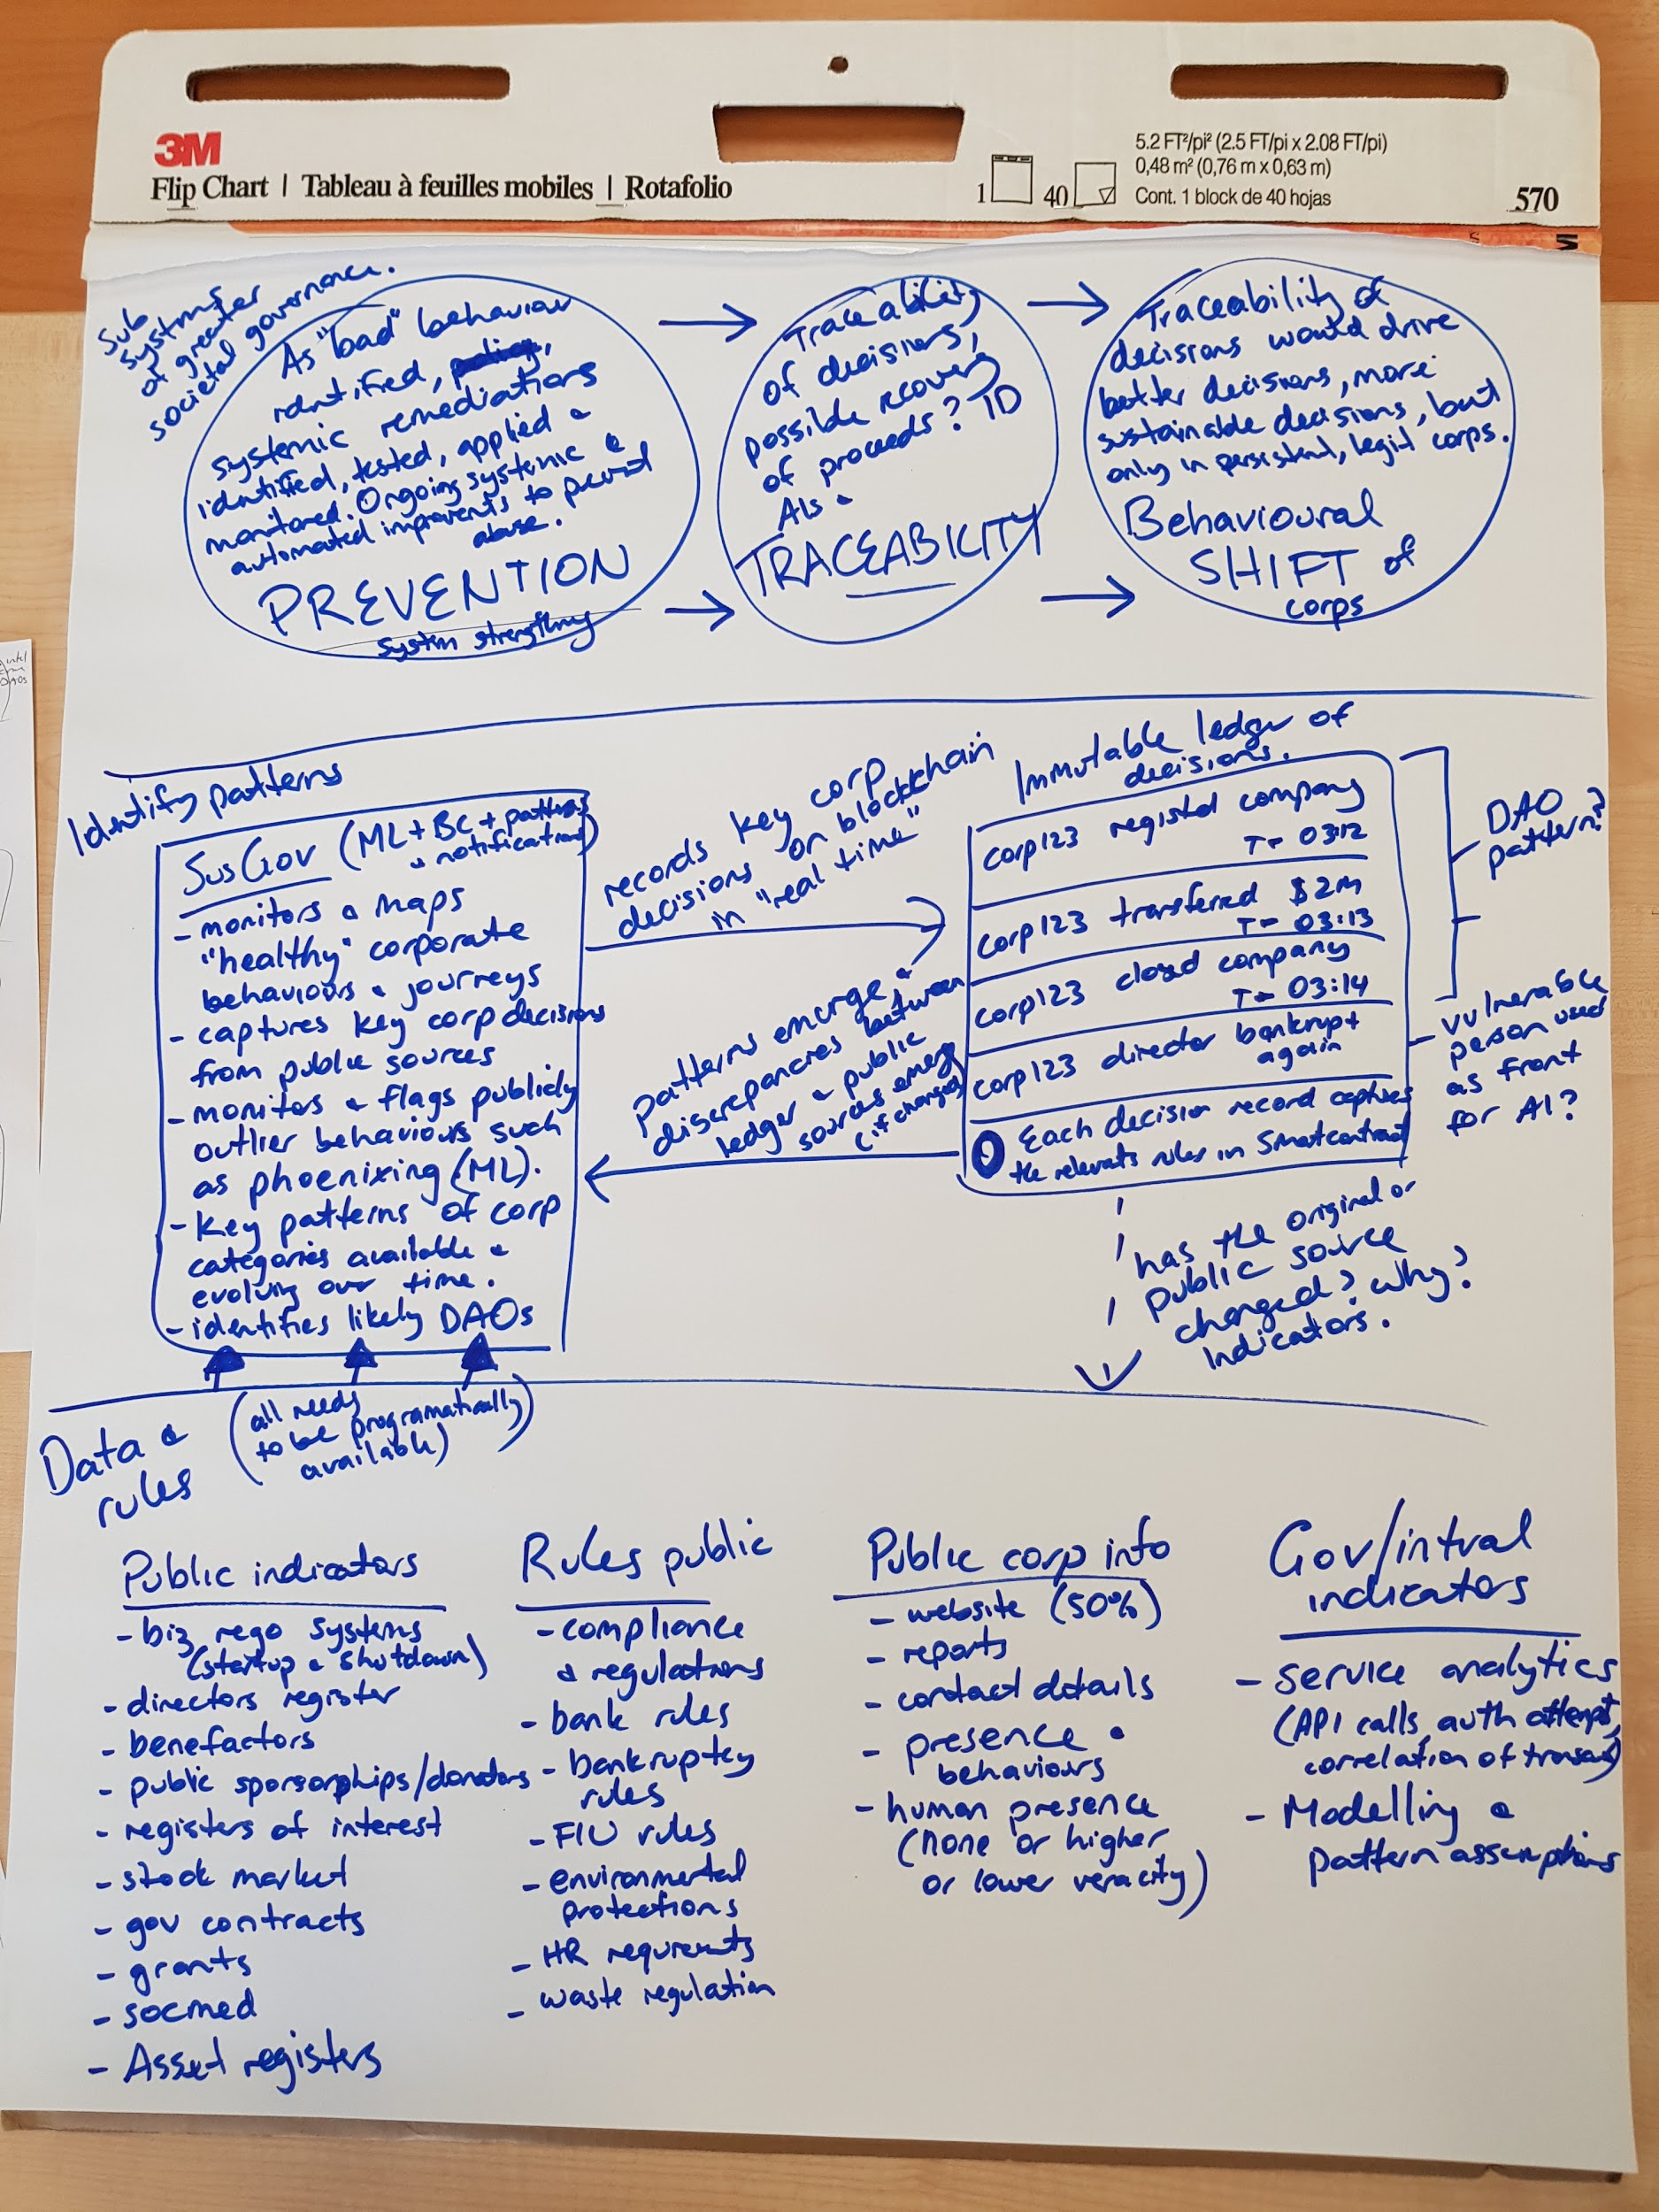 3M
Flip Chart | Tableau à feuilles mobiles | Rotafolio
1
40
5.2 FT²/pi² (2.5 FT/pi x 2.08 FT/pi)
0,48 m² (0,76 m x 0,63 m)
Cont. 1 block de 40 hojas
570
Sub
systems
of greater
societal governance.
As "bad" behaviour
identified,
systemic remediations
identified, tested, applied &
monitored. Ongoing systemic &
automated improvents to prevent
abuse.
PREVENTION
system strengthing
Traceability
of decisions,
possible recovery
of proceeds? ID
AIs
TRACEABILITY
Traceability of
decisions would drive
better decisions, more
sustainable decisions, but
only in persistent, legit corps.
Behavioural
SHIFT of
corps
Identify patterns
SusGov (ML+BC+patterns
& notifications)
- monitors & maps
"healthy" corporate
behaviours & journeys
- captures key corp decisions
from public sources
- monitors & flags publicly
outlier behaviours such
as phoenixing (ML).
- Key patterns of corp
categories available &
evolving over time.
- identifies likely DAOs
records key corp
decisions on blockchain
in "real time"
patterns emerge &
discrepancies between
ledger & public
sources emerge
(if changed)
Immutable ledger of
decisions.
Corp123 registed company
T= 03:12
Corp123 transferred $2m
T= 03:13
Corp123 closed company
T= 03:14
Corp123 director bankrupt
again
Each decision record captures
the relevants rules in Smartcontract
DAO
pattern?
vulnerable
person used
as front
for AI?
has the original or
public source
changed? why?
Indicators.
Data &
rules
(all needs
to be programatically
available)
Public indicators
- biz rego systems
(startup & shutdown)
- directors register
- benefactors
- public sponsorphips/donators
- registers of interest
- stock market
- gov contracts
- grants
- socmed
- Asset registers
Rules public
- compliance
& regulations
- bank rules
- bankruptcy
rules
- FIU rules
- environmental
protections
- HR requirements
- waste regulation
Public corp info
- website (50%)
- reports
- contact details
- presence &
behaviours
- human presence
(none or higher
or lower veracity)
Gov/intral
indicators
- service analytics
(API calls, auth attempt,
correlation of transac)
- Modelling &
pattern assumptions